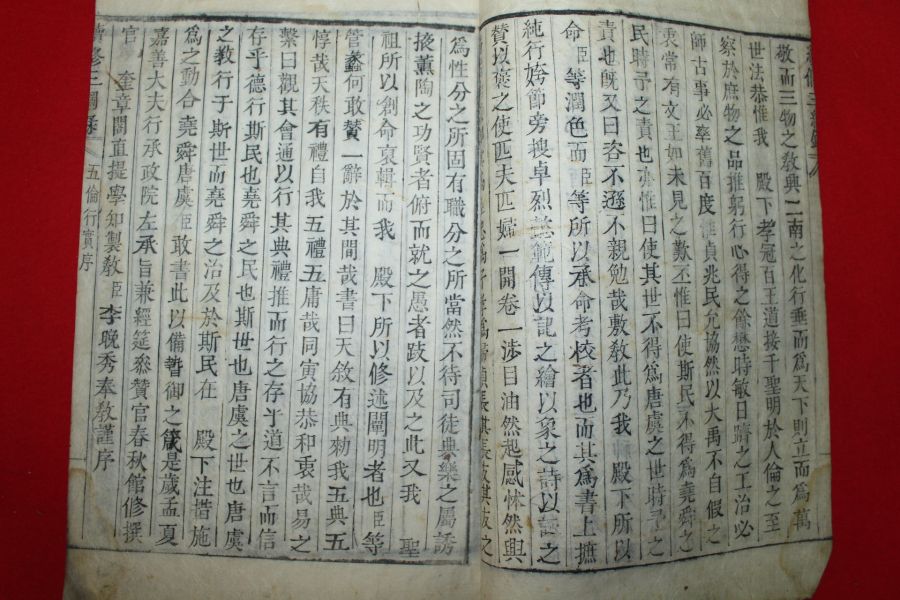 敬而三物之敎興二南之化行垂而爲天下則立而爲萬
世法恭惟我 殿下孝冠百王道接千聖明於人倫之至
察於庶物之品推躬行心得之餘懋時敏日躋之工治必
師古事必率舊百度惟貞兆民允協然以大禹不自假之
衷常有文王如未見之歎丕惟曰使斯民不得爲堯舜之
民時予之責也亦惟曰使其世不得爲唐虞之世時予之
責也旣又曰咨不遜不親勉哉敷敎此乃我 殿下所以
命臣等潤色而臣等所以承命考校者也而其爲書上摭
純行姱節旁搜卓烈懿範傳以記之繪以象之詩以詠之
賛以之使匹夫匹婦一開卷一涉目油然起感怵然興
長其長友其友之
爲性分之所固有職分之所當然不待司徒典樂之屬誘
掖薰陶之功賢者俯而就之愚者跂以及之此又我 聖
祖所以創命裒輯而我 殿下所以修述闡明者也臣等
管蠡何敢賛一辭於其間哉書曰天敘有典勑我五典五
惇哉天秩有禮自我五禮五庸哉同寅協恭和衷哉易之
繫曰觀其會通以行其典禮推而行之存乎道不言而信
存乎德行斯民也堯舜之民也斯世也唐虞之世也唐虞
之敎行于斯世而堯舜之治及於斯民在 殿下注措施
爲之動合堯舜唐虞臣敢書此以備暬御之箴是歲孟夏
嘉善大夫行承政院左承旨兼經筵叅賛官春秋館修撰
官 奎章閣直提學知製敎臣李晩秀奉敎謹序
五倫行實序